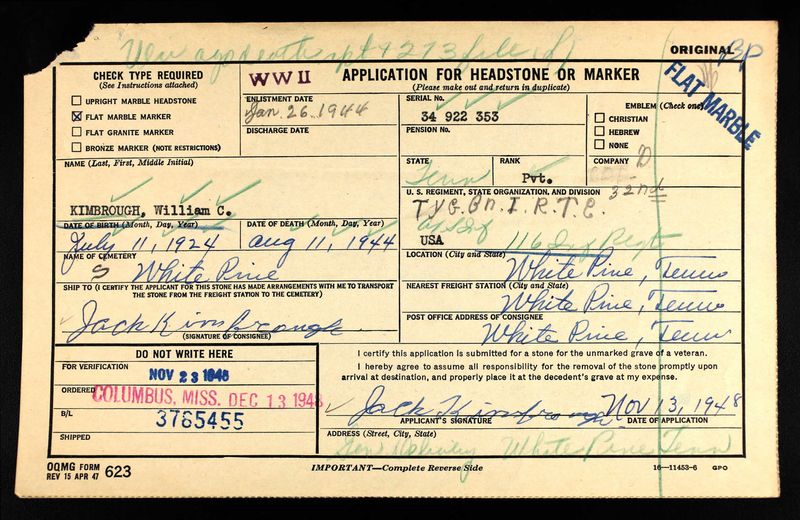 ORIGINAL
FLAT MARBLE
CHECK TYPE REQUIRED
(See Instructions attached)
UPRIGHT MARBLE HEADSTONE
FLAT MARBLE MARKER
FLAT GRANITE MARKER
BRONZE MARKER (NOTE RESTRICTIONS)
WW II
APPLICATION FOR HEADSTONE OR MARKER
(Please make out and return in duplicate)
ENLISTMENT DATE
Jan. 26. 1944
DISCHARGE DATE
SERIAL No.
34 922 353
PENSION No.
EMBLEM (Check one)
CHRISTIAN
HEBREW
NONE
STATE
Tenn
RANK
Pvt.
COMPANY
D
NAME (Last, First, Middle Initial)
KIMBROUGH, William C.
U. S. REGIMENT, STATE ORGANIZATION, AND DIVISION
32nd
Tyg. Bn. I. R. T. C.
USA
116 Inf Regt
DATE OF BIRTH (Month, Day, Year)
July 11, 1924
DATE OF DEATH (Month, Day, Year)
Aug 11, 1944
NAME OF CEMETERY
White Pine
LOCATION (City and State)
White Pine, Tenn
SHIP TO (I CERTIFY THE APPLICANT FOR THIS STONE HAS MADE ARRANGEMENTS WITH ME TO TRANSPORT THE STONE FROM THE FREIGHT STATION TO THE CEMETERY)
NEAREST FREIGHT STATION (City and State)
White Pine, Tenn
Jack Kimbrough
(SIGNATURE OF CONSIGNEE)
POST OFFICE ADDRESS OF CONSIGNEE
White Pine, Tenn
DO NOT WRITE HERE
FOR VERIFICATION
NOV 23 1948
ORDERED
COLUMBUS, MISS. DEC 13 1948
B/L
3765455
SHIPPED
I certify this application is submitted for a stone for the unmarked grave of a veteran.
I hereby agree to assume all responsibility for the removal of the stone promptly upon
arrival at destination, and properly place it at the decedent's grave at my expense.
Jack Kimbrough
Nov 13, 1948
APPLICANT'S SIGNATURE
DATE OF APPLICATION
ADDRESS (Street, City, State)
Gen Delivery White Pine Tenn
OQMG FORM 623
REV 15 APR 47
IMPORTANT—Complete Reverse Side
16—11453-6 GPO